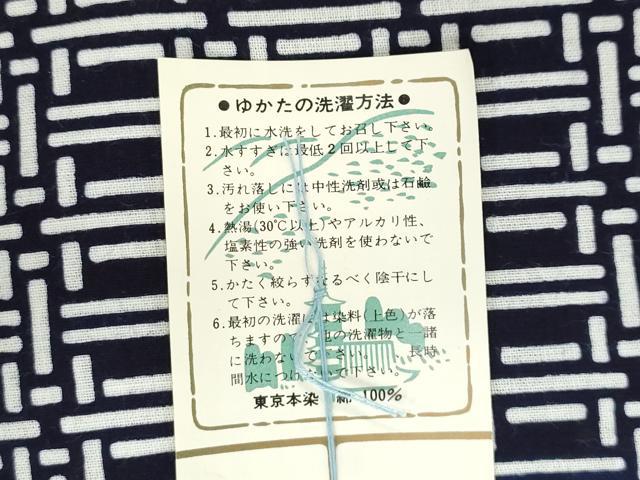 ●ゆかたの洗濯方法●
1.最初に水洗をしてお召し下さい。
2.水すすぎは最低2回以上して下
さい。
3.汚れ落しには中性洗剤或は石鹼
をお使い下さい。
4.熱湯(30℃以上)やアルカリ性、
塩素性の強い洗剤を使わないで
下さい。
5.かたく絞らずなるべく陰干にし
て下さい。
6.最初の洗濯には染料(上色)が落
ちますので他の洗濯物と一諸
に洗わないで下さい。 長時
間水につけないで下さい。
東京本染 綿 100%